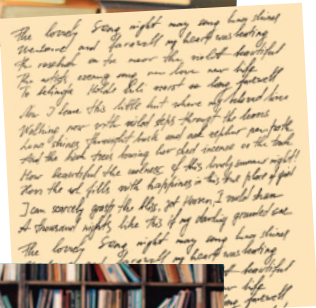 The lovely Song night may song Luna shines
Welcome and farewell my heart was beating
The rosebush on the moor the violet beautiful
The artist's evening song new love new life
To belinde Holds bili worst on long farewell
Now I leave this little hut where my beloved lives
Walking now with veiled steps through the leaves
Luna shines through bush and oak zephyr per path
And the birch trees bowing low shed incense on the track
How beautiful the coolness of this lovely summer night!
How the soul fills with happiness in this true place of quiet
I can scarcely grasp the bliss, yet Heaven, I would shun
A thousand nights like this if my darling granted one
The lovely Song night may song Luna shines
heart was beating
beautiful
new life
farewell